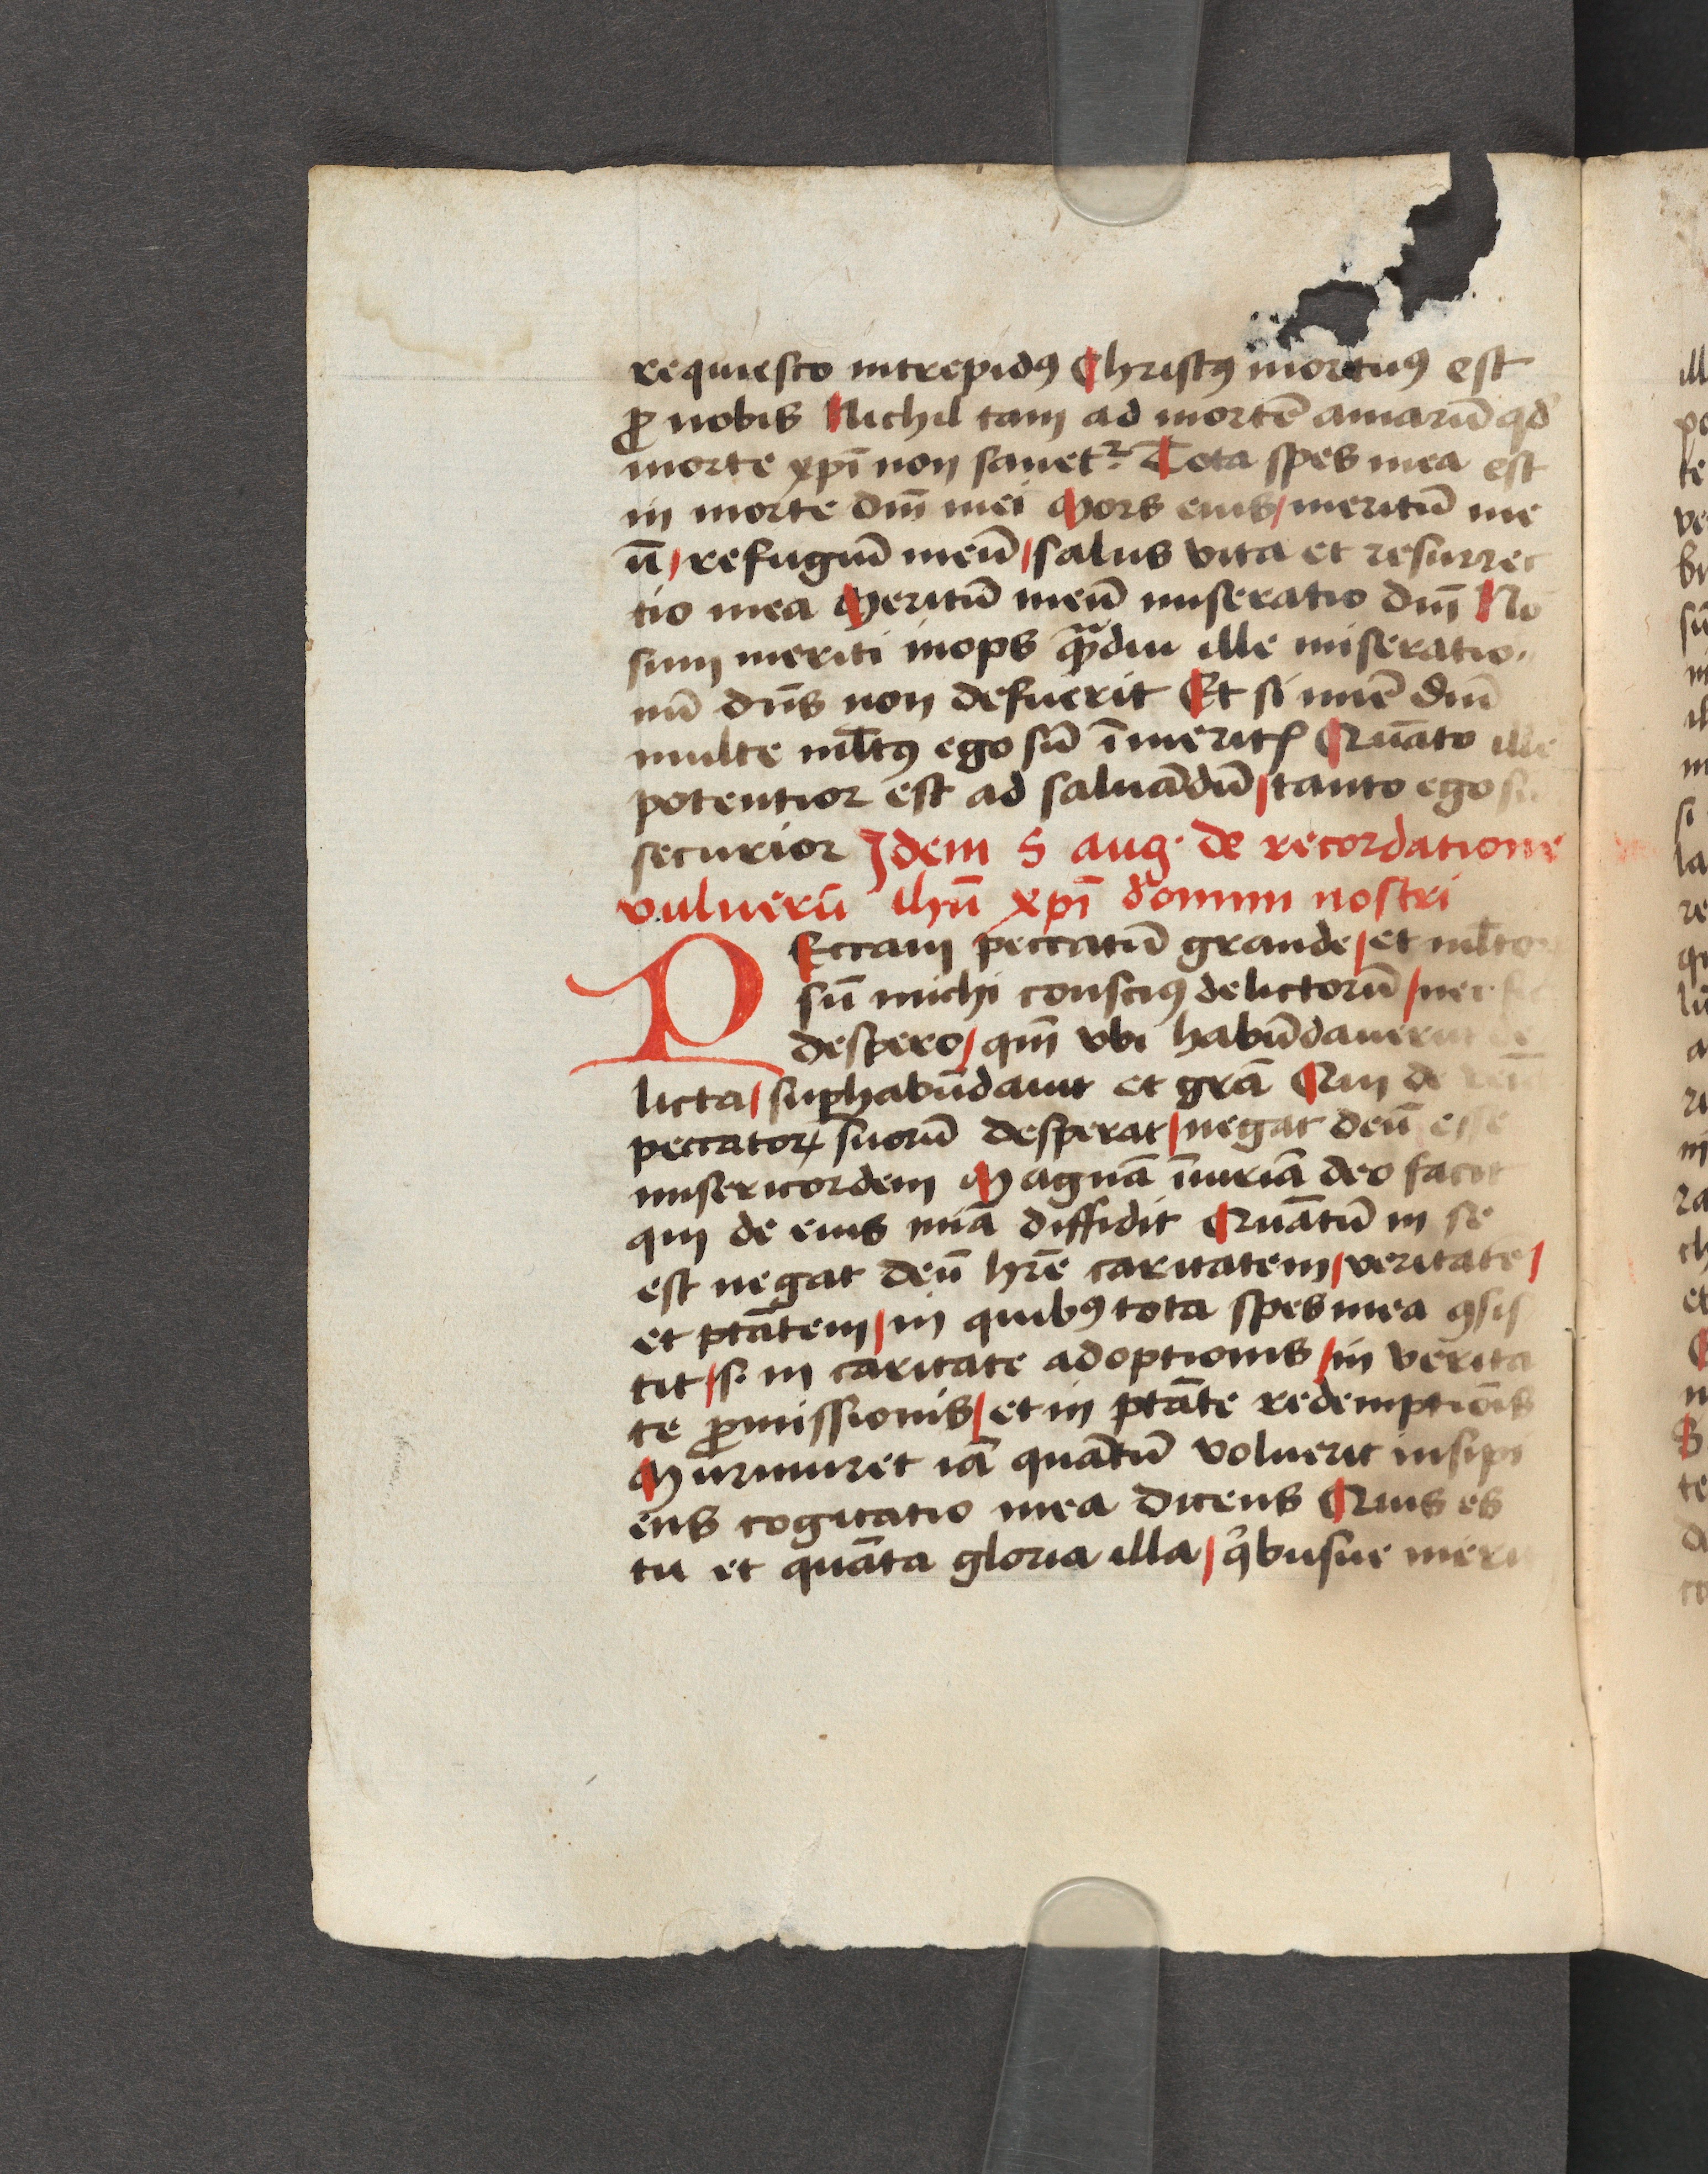 requiesco intrepidꝯ Christꝯ mortuꝯ est
ꝓ nobis Nichil tam ad mortē amarū qd̄
morte xp̄i non sanetᷣ. Tota spes mea est
in morte dn̄i mei Mors eius / meritū me
ū / refugiū meū / salus vita et resurrec
tio mea Meritū meū miseratio dn̄i Nō
sum meriti inops qᷓ̄diu ille miseratio
nū dn̄s non defuerit Et si mīe dn̄i
multe ml̄tꝯ ego sū ī meritꝭ Quāto ille
potentior est ad saluādū / tanto ego sū
securior Idem S aug. de recordatione
vulnerū ihū xp̄i domini nostri
PEccaui peccatū grande / et ml̄tor
sū michi consciꝯ delictorū / nec sic
despero / qm̄ vbi habūdauerūt de
licta / suꝑhabūdauit et grā Qui de venīa
peccatoꝝ suorū desperat / negat deū esse
misericordem Magnā īiuriā deo facit
qui de eius mīa diffidit Quātū in se
est negat deū hr̄e caritatem / veritatē /
et ptātem / in quibꝯ tota spes mea ꝯsis
tit / s. in caritate adoptionis / in verita
te ꝓmissionis / et in ptāte redemptiōis
Murmuret iā quātū voluerit insipi
ens cogitatio mea dicens Quis es
tu et quāta gloria illa / qͥbusue meri